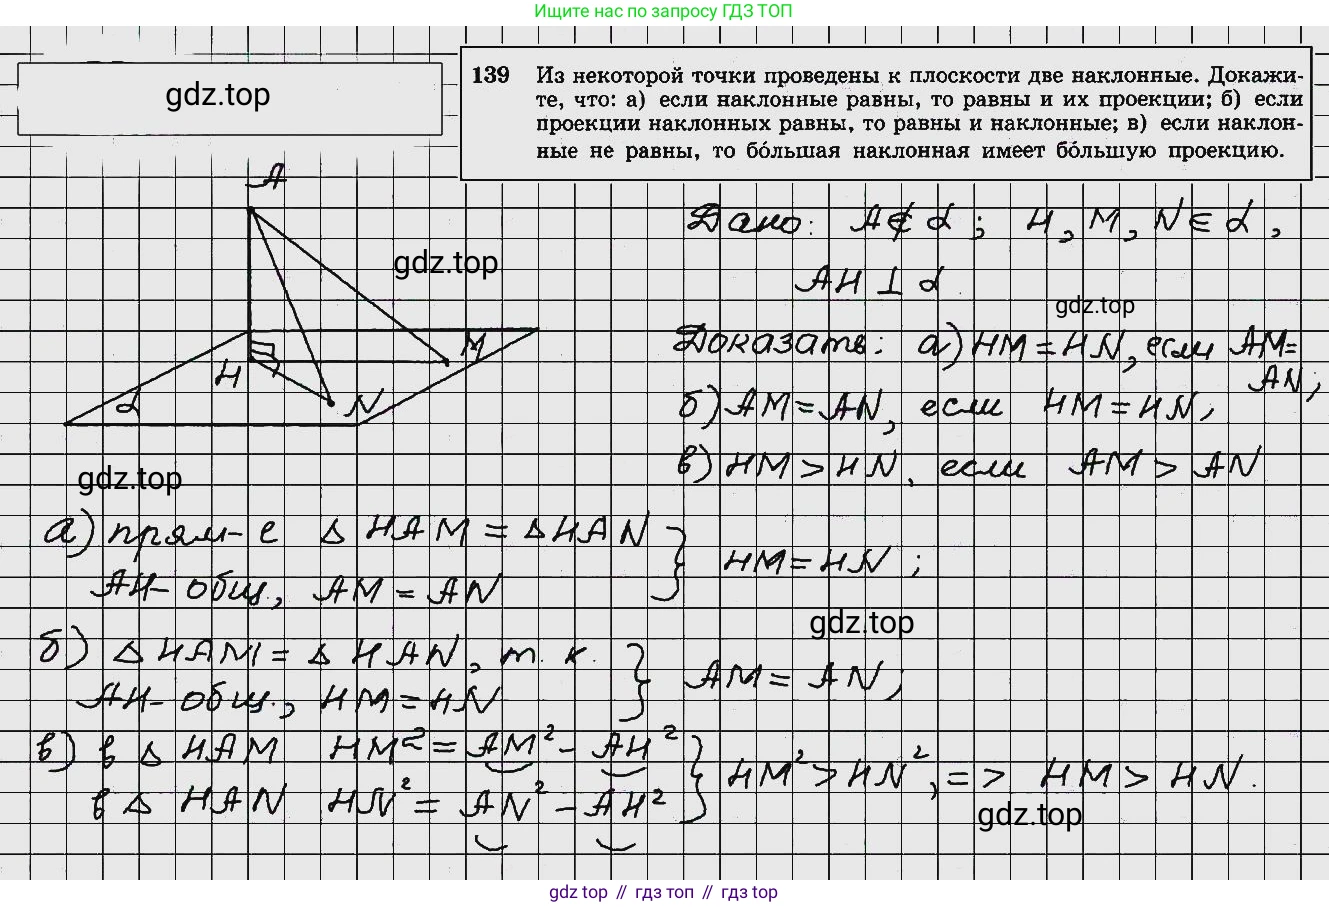 Ищите нас по запросу ГДЗ ТОП
gdz.top
139 Из некоторой точки проведены к плоскости две наклонные. Докажи-
те, что: а) если наклонные равны, то равны и их проекции; б) если
проекции наклонных равны, то равны и наклонные; в) если наклон-
ные не равны, то бо́льшая наклонная имеет бо́льшую проекцию.
A
gdz.top
M
H
N
α
gdz.top
Дано: A∉α; H, M, N∈α,
AH⊥α
gdz.top
Доказать: а) HM=HN, если AM=
AN;
б) AM=AN, если HM=HN,
в) HM>HN, если AM>AN
а) прям-е △HAM=△HAN
AH-общ., AM=AN } HM=HN;
gdz.top
б) △HAM=△HAN, т.к.
AH-общ., HM=HN } AM=AN;
в) в △HAM HM²=AM²-AH²
в △HAN HN²=AN²-AH² } HM²>HN², => HM>HN.
gdz.top
gdz top // гдз топ // gdz top